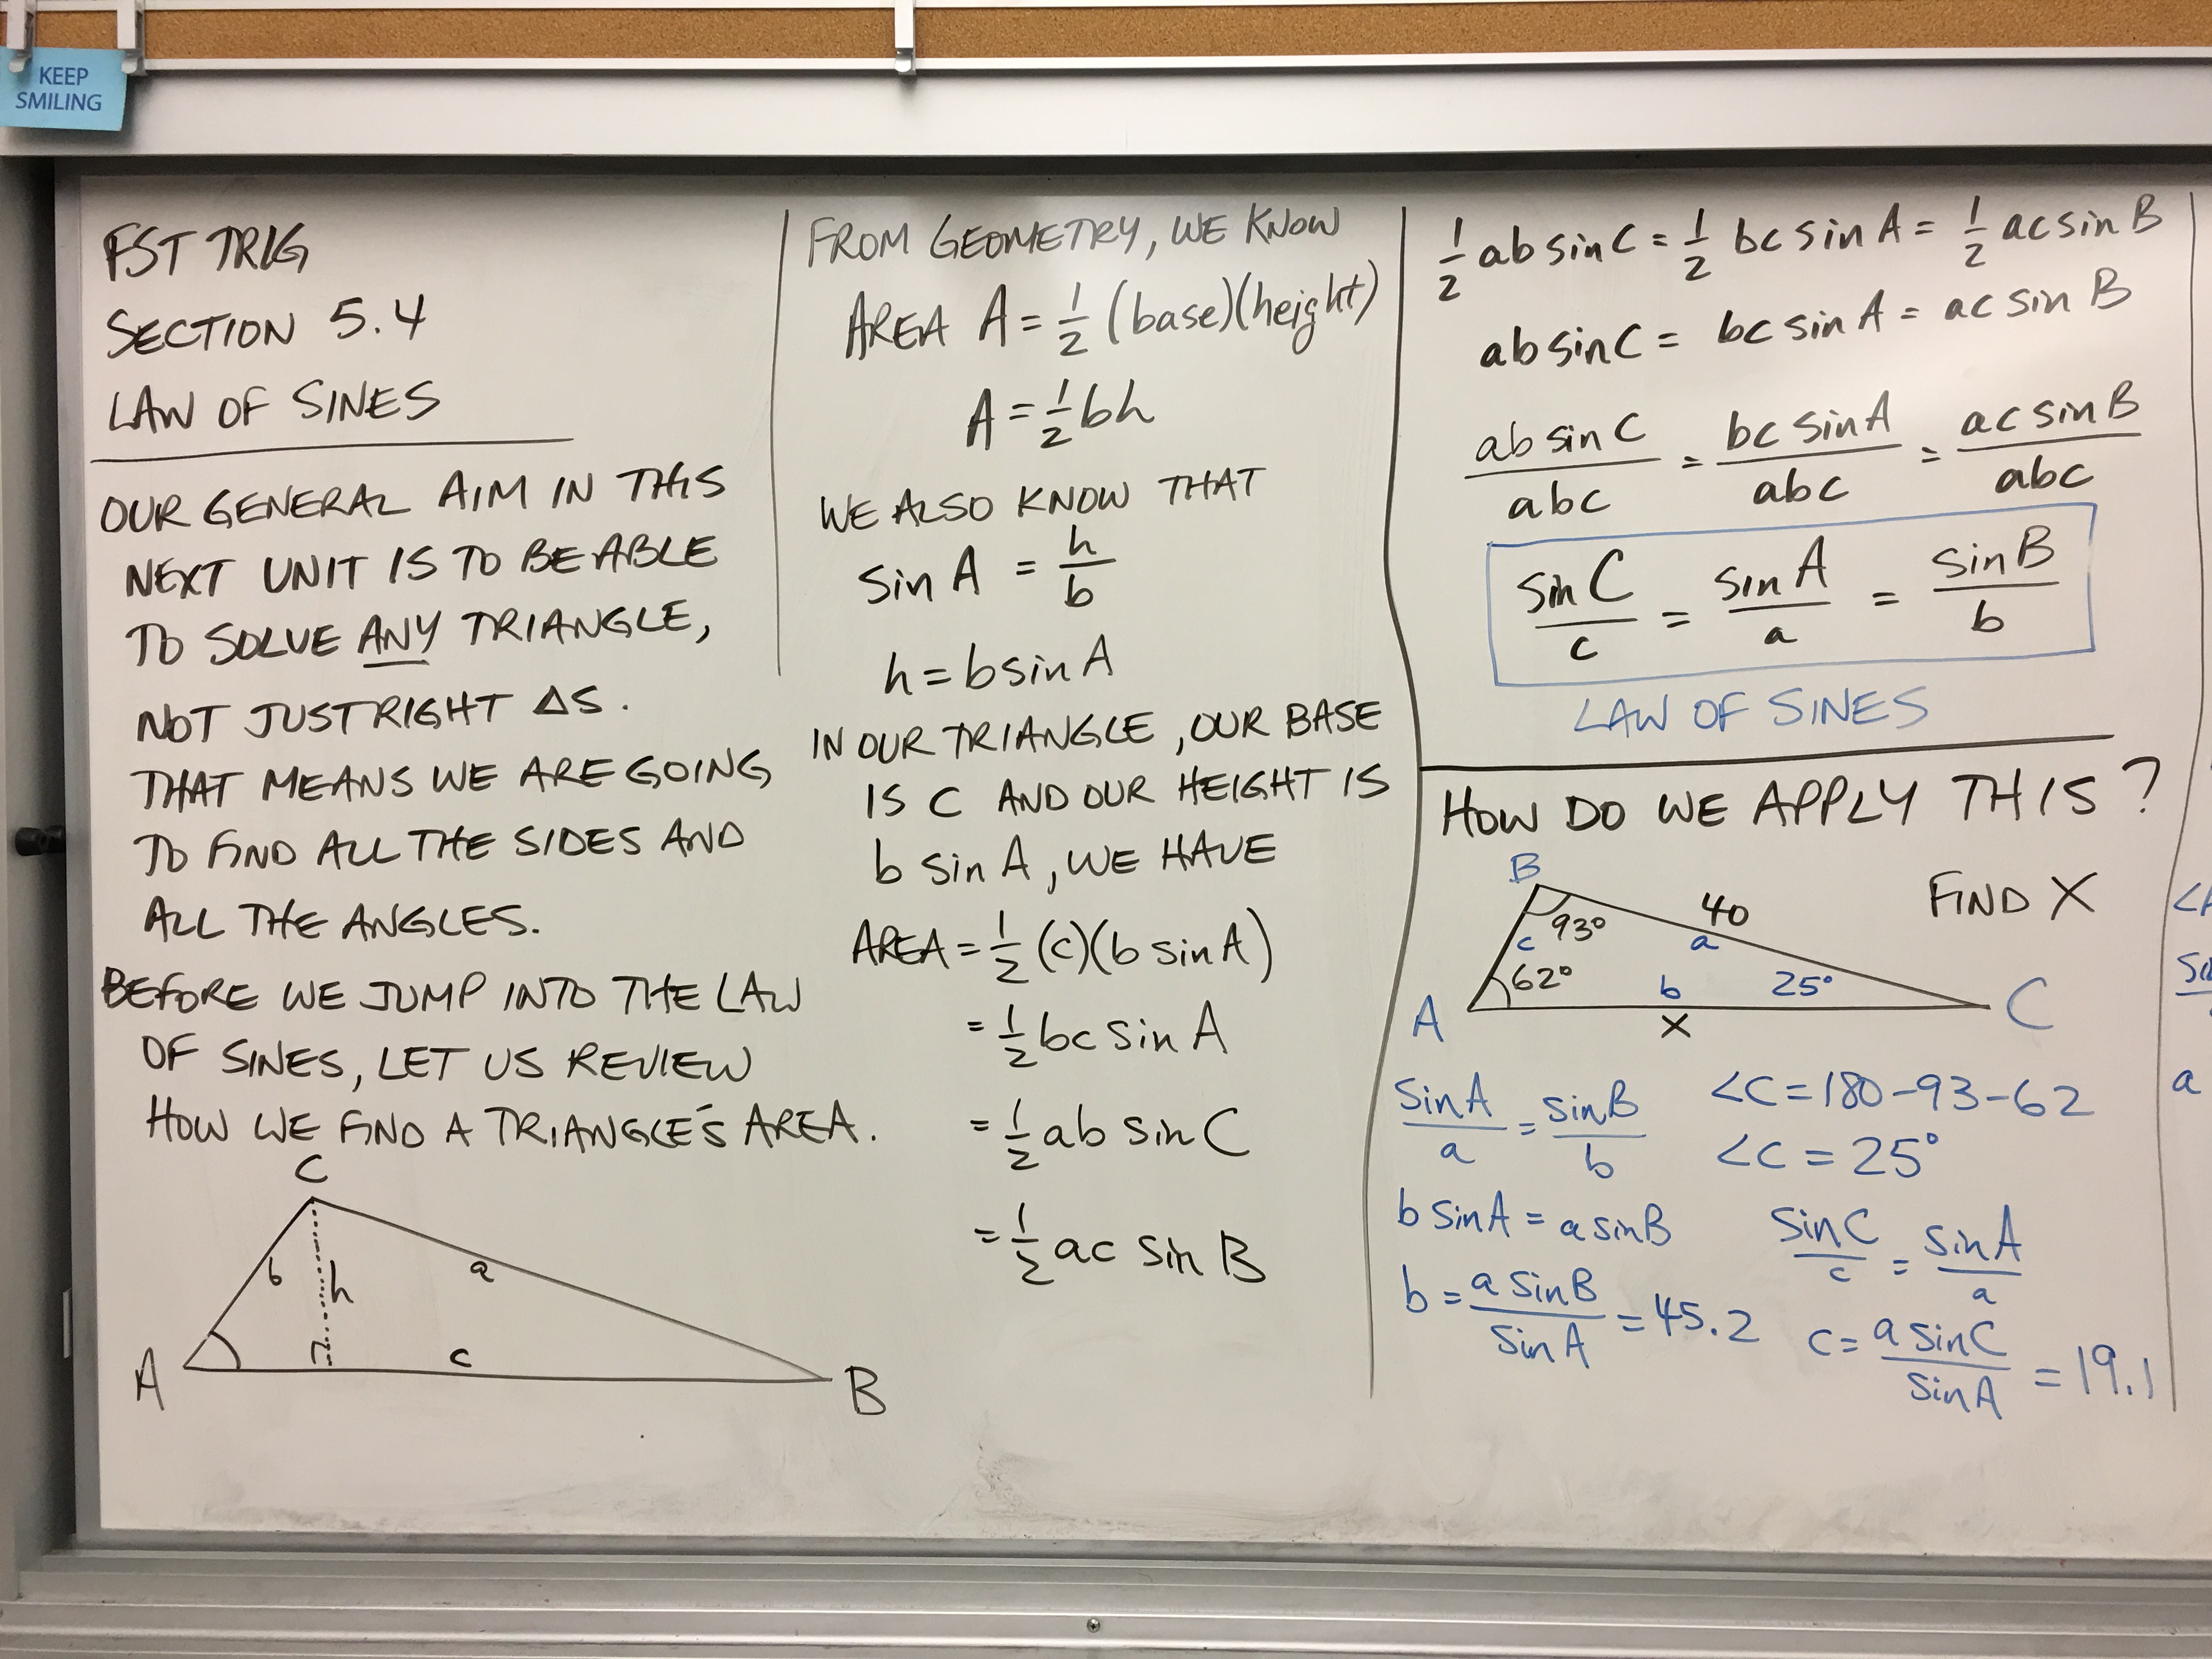 KEEP
SMILING
FST TRIG
SECTION 5.4
LAW OF SINES
OUR GENERAL AIM IN THIS
NEXT UNIT IS TO BE ABLE
TO SOLVE ANY TRIANGLE,
NOT JUST RIGHT ΔS.
THAT MEANS WE ARE GOING
TO FIND ALL THE SIDES AND
ALL THE ANGLES.
BEFORE WE JUMP INTO THE LAW
OF SINES, LET US REVIEW
HOW WE FIND A TRIANGLE'S AREA.
C
b h a
A c B
FROM GEOMETRY, WE KNOW
AREA A = 1/2 (base)(height)
A = 1/2 bh
WE ALSO KNOW THAT
sin A = h/b
h = b sin A
IN OUR TRIANGLE, OUR BASE
IS C AND OUR HEIGHT IS
b sin A, WE HAVE
AREA = 1/2 (c)(b sin A)
= 1/2 bc sin A
= 1/2 ab sin C
= 1/2 ac sin B
1/2 ab sin C = 1/2 bc sin A = 1/2 ac sin B
ab sin C = bc sin A = ac sin B
ab sin C/abc = bc sin A/abc = ac sin B/abc
sin C/c = sin A/a = sin B/b
LAW OF SINES
HOW DO WE APPLY THIS?
FIND X
B
93° 40
c a
62° b 25°
A X C
sin A/a = sin B/b
b sin A = a sin B
b = a sin B/sin A = 45.2
<C = 180-93-62
<C = 25°
sin C/c = sin A/a
c = a sin C/sin A = 19.1
a